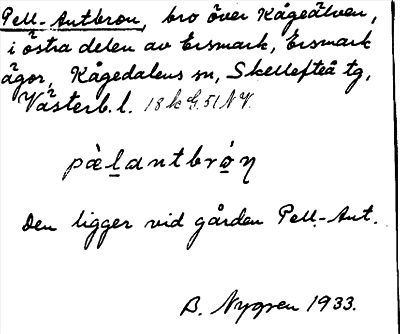 Pell-Antbron, bro över Kågeälven,
i östra delen av Ersmark, Ersmark
ägor, Kågedalens sn, Skellefteå tg,
Västerb. l. 18 k G. 51 NV.
pèl̲antbrọ́n̲
Den ligger vid gården Pell-Ant.
B. Nygren 1933.